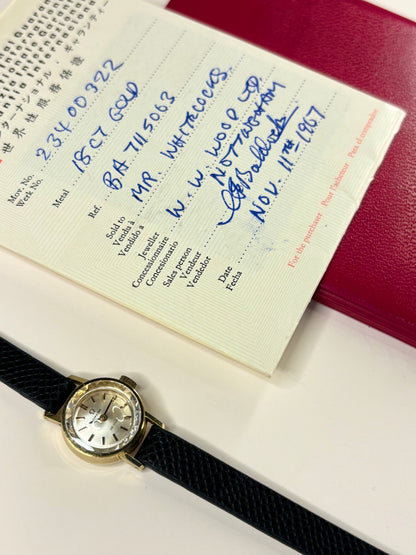 インターナショナル・ギャランティー
世界性服務保證
Mov. No. 23400322
Werk No.
Metal 18CT GOLD
Ref. BA 7115063
Sold to MR. WHITCOCKS.
Vendu à
Vendido a
Jeweller W. W. WOOD LTD
Concessionnaire NOTTINGHAM
Concesionario
Sales person
Vendeur
Vendedor
Date NOV. 11TH 1967
Fecha
For the purchaser Pour l'acheteur Para el comprador